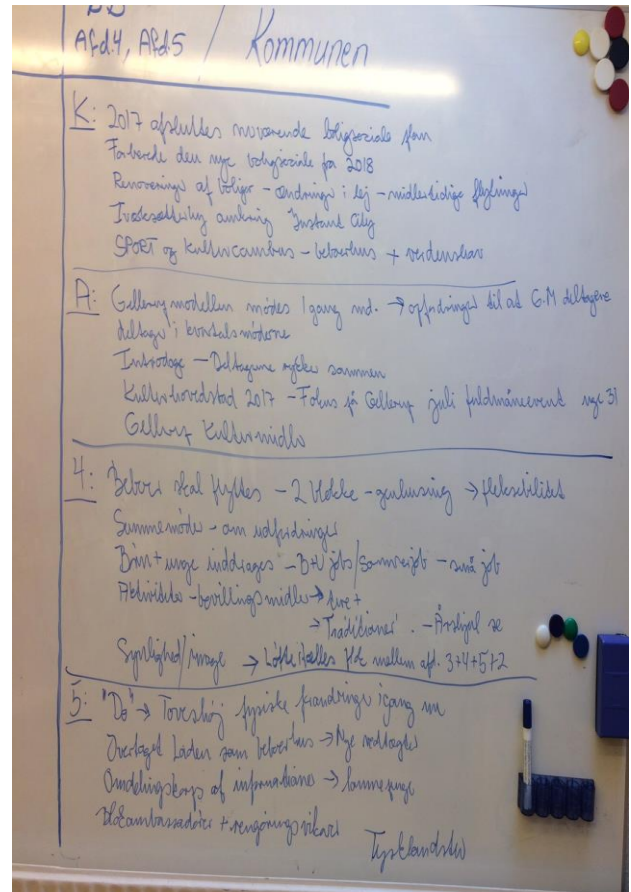 Afd.4, Afd.5 / Kommunen
K: 2017 afsluttes nuværende boligsociale plan
Forberede den nye boligsociale for 2018
Renoveringer af boliger - ændringer i lej - midlertidige flytninger
Iværksættelse omkring Instant City
SPORT og Kulturcambus - beboerhus + verdenshav
A: Gellerupmodellen mødes 1 gang md. → opfordringer til at G.M deltagere
deltage i kvartalsmøderne
Introdage - Deltagerne rykker sammen
Kulturhovedstad 2017 - Fokus på Gellerup juli fuldmåneevent uge 31
Gellerup Kulturmidler
4: Beboer skal flyttes - 2 blokke - genhusning → fleksibilitet
Summemøder - om udfordringer
Børn + unge inddrages - B+U jobs/Sommerjob - små job
Aktiviteter - bevillingsmidler →
→ Traditioner. - Årshjul
Synlighed/image → Løfte fælles mellem afd. 3+4+5+2
5: "Do" → Toveshøj fysiske forandringer igang nu
Overtaget Laden som beboerhus → Nye
Omdelingskorps af informationer → lommepenge
Blokambassadører + rengøringsvikarer
Tysklandstur